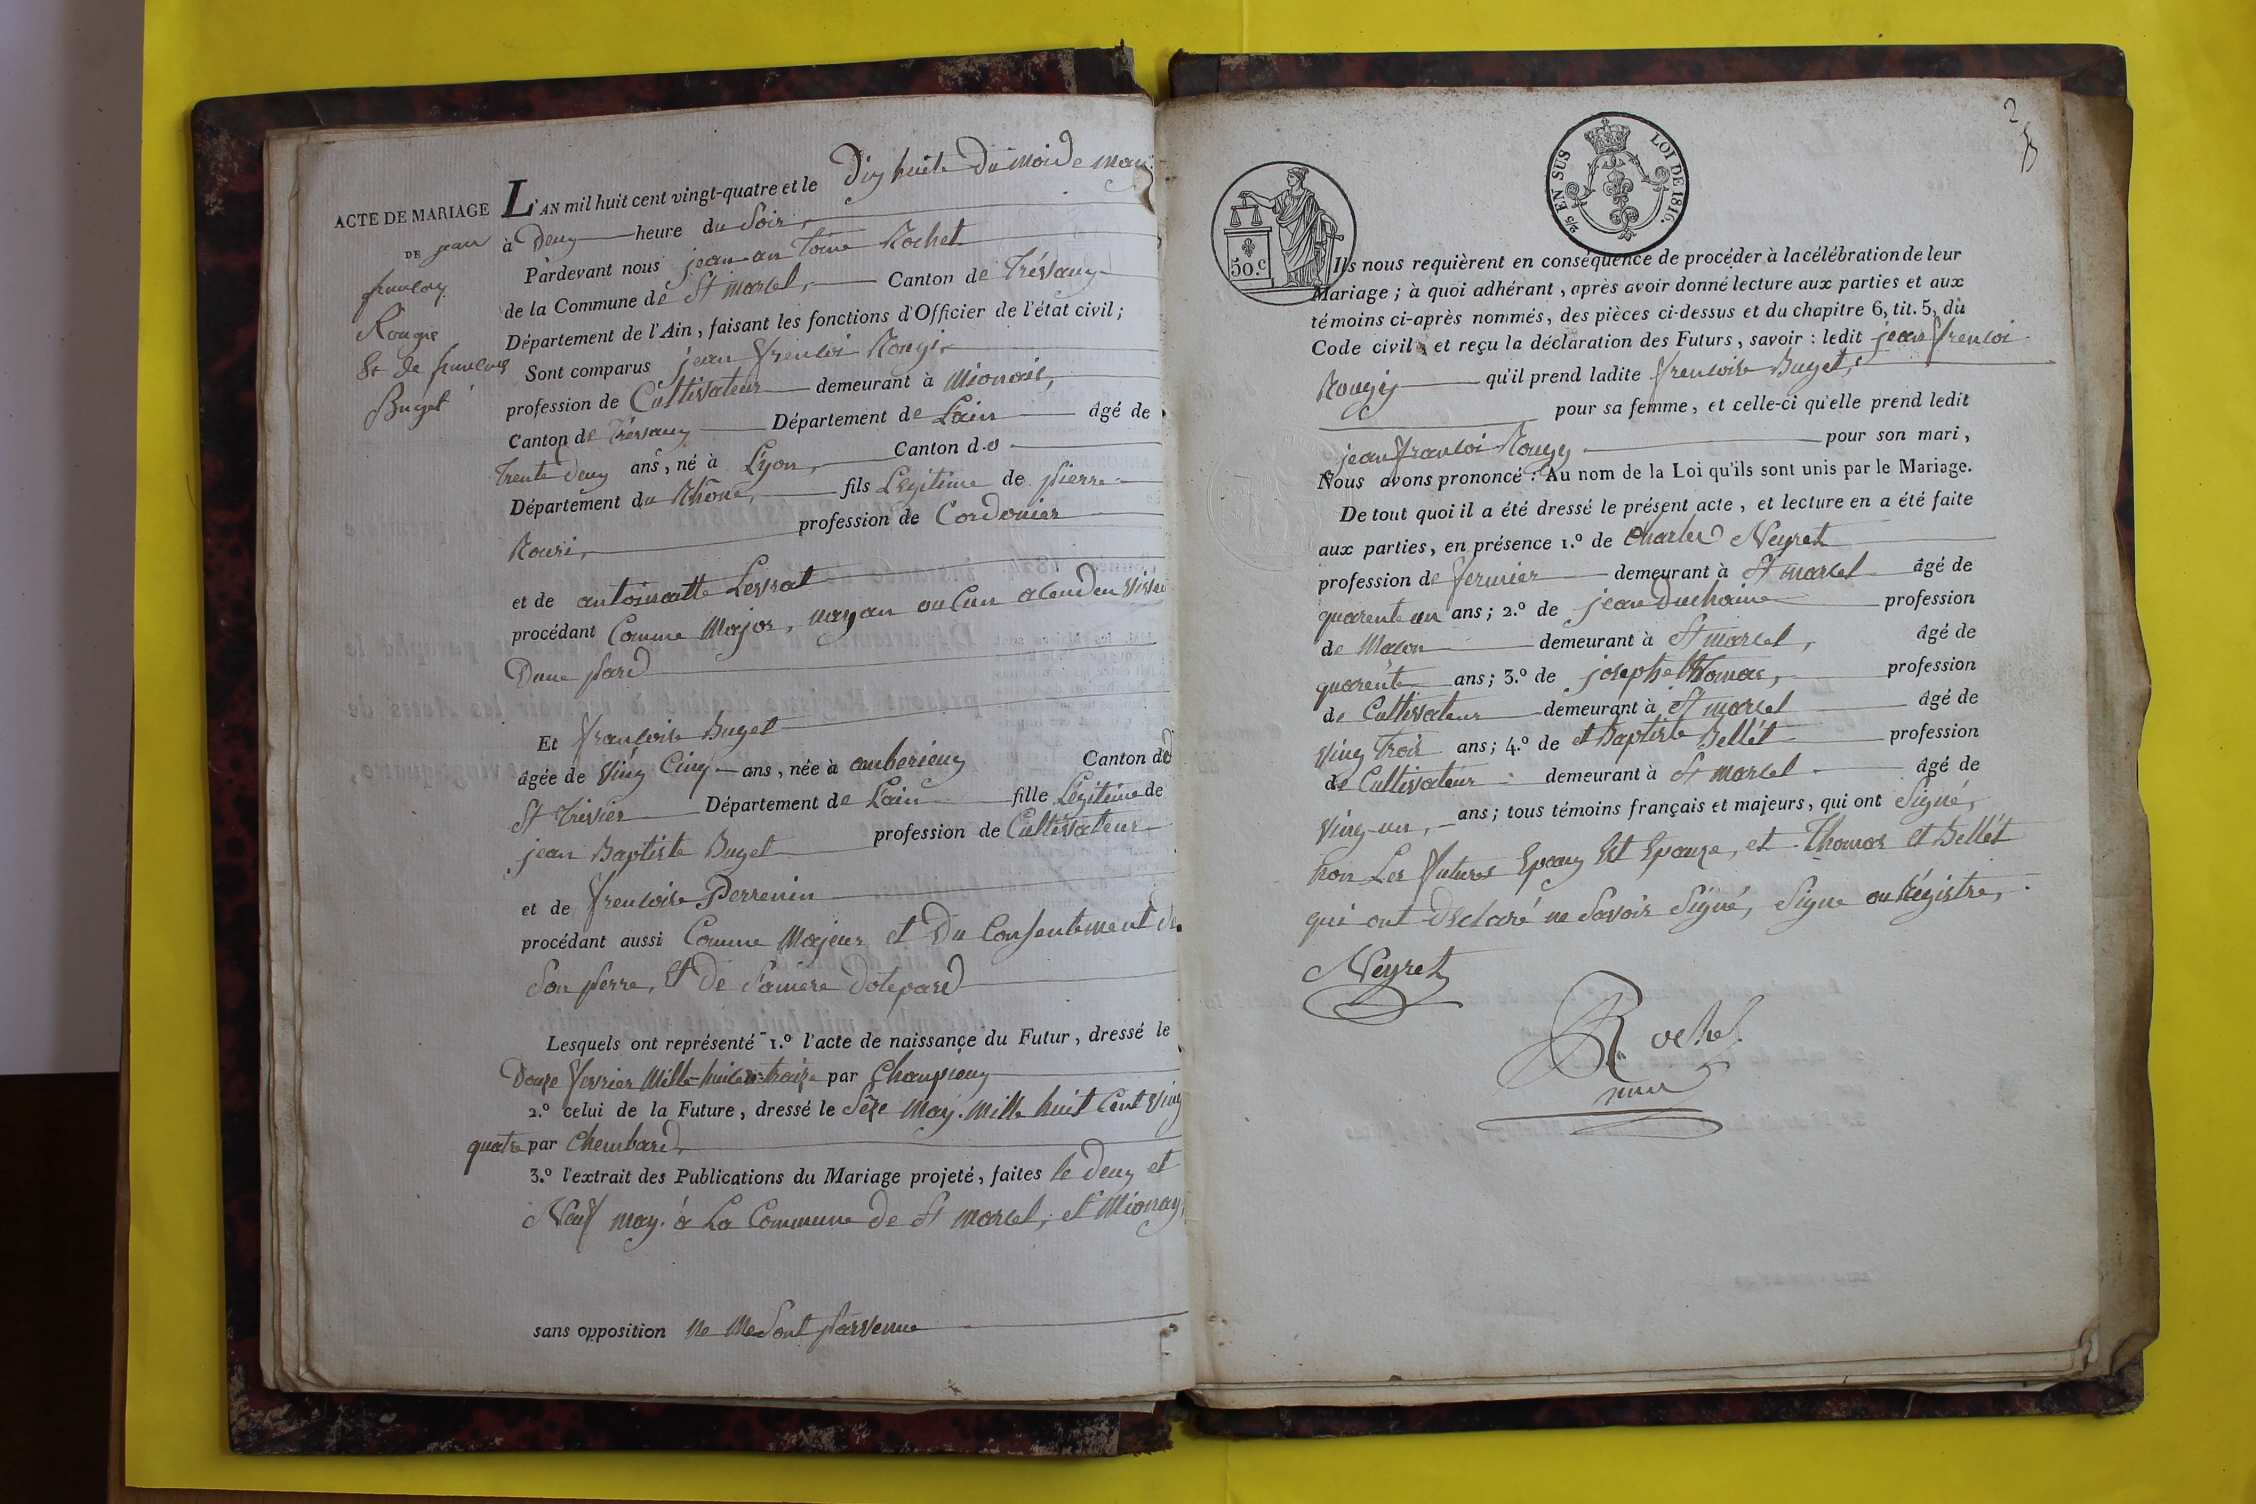 ACTE DE MARIAGE
DE jean
francois
Rougie
Et de francoise
Buget
L'AN mil huit cent vingt-quatre et le Diy huite Du moi De may
à Deuy heure du Soir,
Pardevant nous jean an Toine Rochet
de la Commune de St marcel, Canton de Trévauy
Département de l'Ain, faisant les fonctions d'Officier de l'état civil;
Sont comparus jean frencoi Rougi,
profession de Cultivateur demeurant à Mionais,
Canton de Trévauy Département de Lain âgé de
Trente Deuy ans, né à Lyon, Canton d
Département du Rhône, fils Légitime de pierre
Rouri, profession de Cordonier
et de antoinatte Lessat
procédant Comme Major, nayan oucun
Dune pard
Et francoise Buget
âgée de Ving Cinq ans, née à amberieuy Canton de
St Trivier Département de Lain fille Légitime de
jean Baptiste Buget profession de Cultivateur
et de frencoise Perrenin
procédant aussi Comme Majeur et Du Consentement de
Son perre, Et De Samere Dotepard
Lesquels ont représenté 1.º l'acte de naissance du Futur, dressé le
Douze fevrier Mille par Champieuy
2.º celui de la Future, dressé le Sèze May. Mille huit Cent Ving
quatre par Chembard,
3.º l'extrait des Publications du Mariage projeté, faites le Deuy et
Neuf may. à La Commune de St marcel, et Mionay,
sans opposition ne me Sont parvenue
2
2/5 EN SUS LOI DE 1816.
50.c
Ils nous requièrent en conséquence de procéder à la célébration de leur
Mariage; à quoi adhérant, après avoir donné lecture aux parties et aux
témoins ci-après nommés, des pièces ci-dessus et du chapitre 6, tit. 5, du
Code civil, et reçu la déclaration des Futurs, savoir: ledit jean frencoi
Rougy qu'il prend ladite frencoise Buget,
pour sa femme, et celle-ci qu'elle prend ledit
jean francoi Rougy pour son mari,
Nous avons prononcé: Au nom de la Loi qu'ils sont unis par le Mariage.
De tout quoi il a été dressé le présent acte, et lecture en a été faite
aux parties, en présence 1.º de Charles Neyret
profession de fermier demeurant à St marcel âgé de
quarente un ans; 2.º de jean Duchaine profession
de Macon demeurant à St marcel, âgé de
quarente ans; 3.º de josephe Thomas, profession
de Cultivateur demeurant à St marcel âgé de
Ving Trois ans; 4.º de et Baptiste Bellét profession
de Cultivateur demeurant à St marcel âgé de
Ving-un, ans; tous témoins français et majeurs, qui ont Signé,
non Les futures Epouy Et Epouze, et Thomas et Bellét
qui ont Déclaré ne Savoir Signé, Signe au Régistre,
Neyret
Rochet
mer